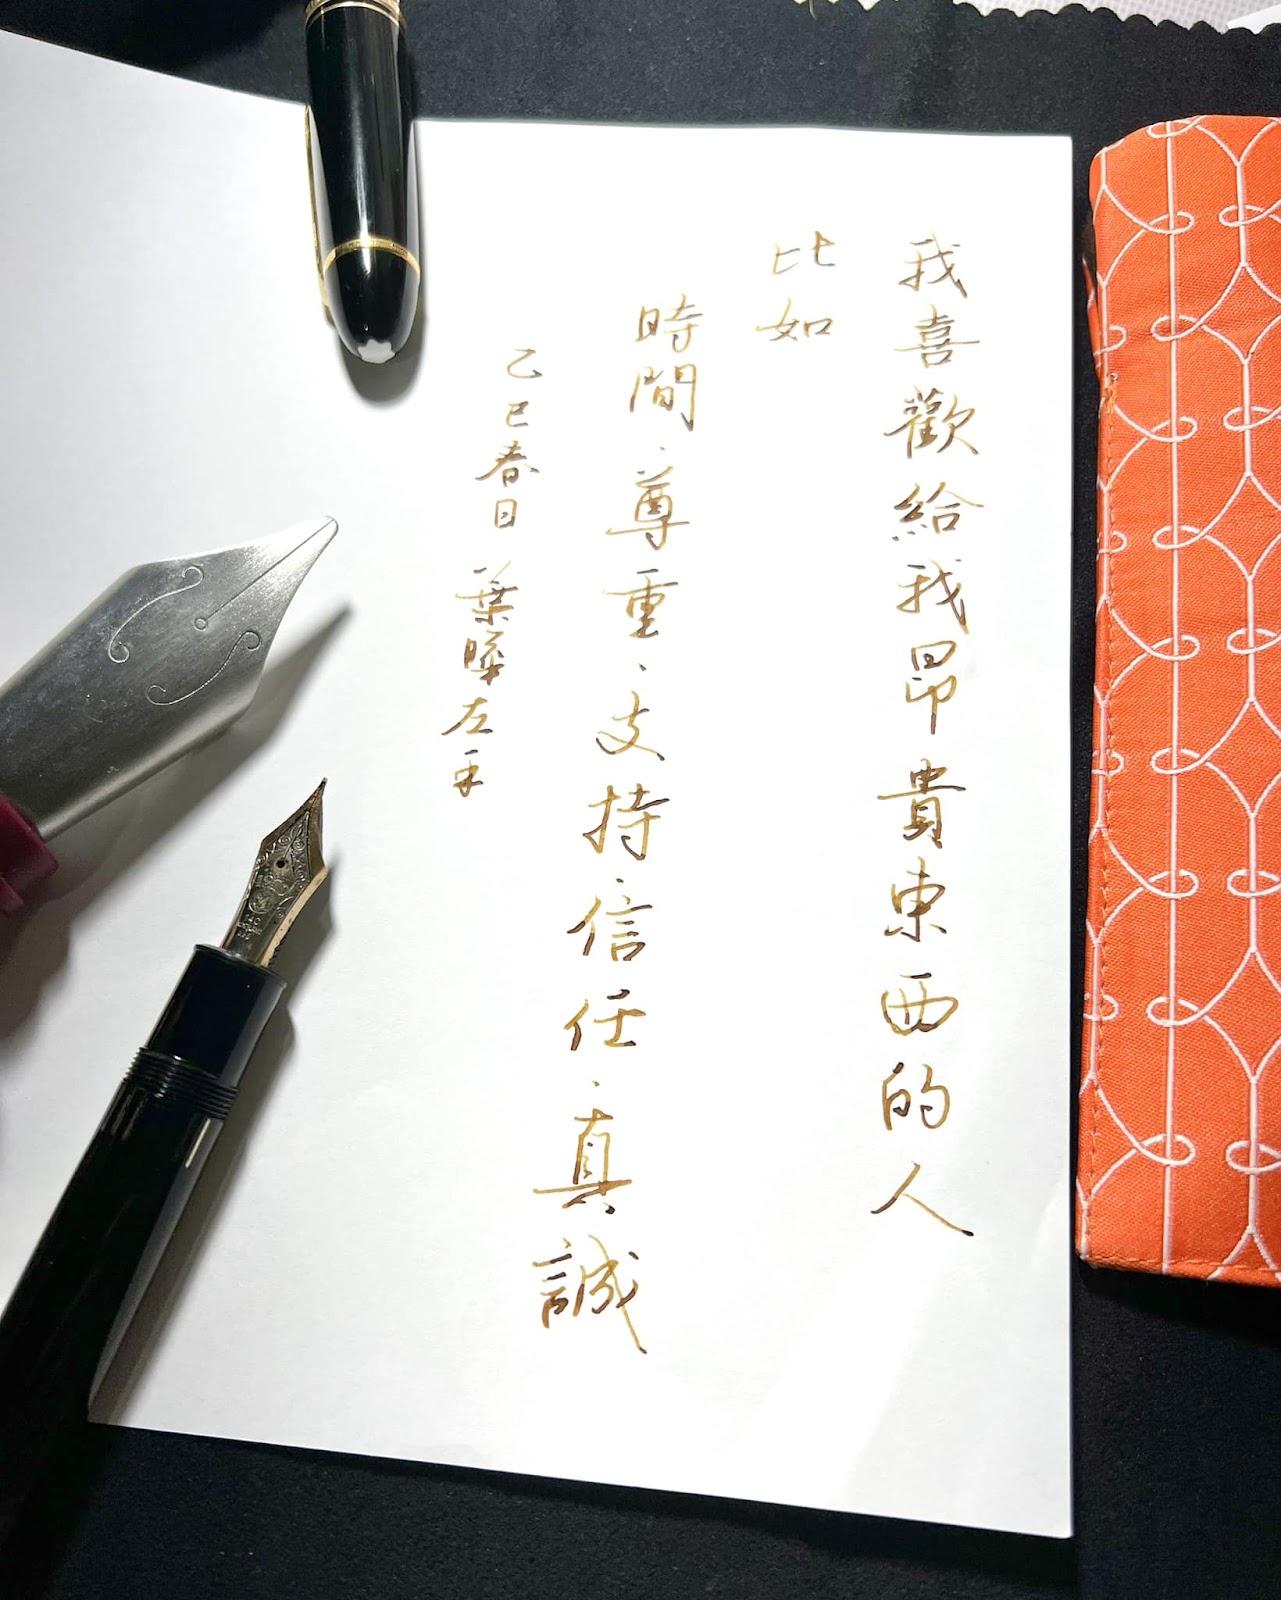 我喜歡給我昂貴東西的人
比如
時間、尊重、支持、信任、真誠
乙巳春日 葉曄左手